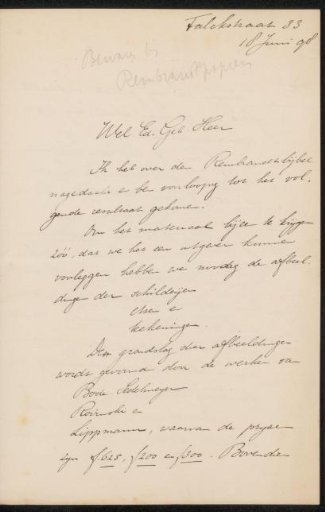 Falckstraat 33
18 Juni 98
Bewaar bij
Rembrandtpapieren
Wel Ed. Geb. Heer
Ik heb over den Rembrandtbijbel
nagedacht & ben voorloopig tot het vol-
gende resultaat gekomen.
Om het materiaal bijeen te krijgen
zóó, dat we het een uitgever kunnen
voorleggen hebben we noodig de afbeel-
dingen der schilderijen
etsen &
teekeningen.
Den grondslag der afbeeldingen
wordt gevormd door de werken van
Bode Sedelmeyer
Rovinski en
Lippmann, waarvan de prijzen
zijn f 625, f 200 en f 500. Bovendien